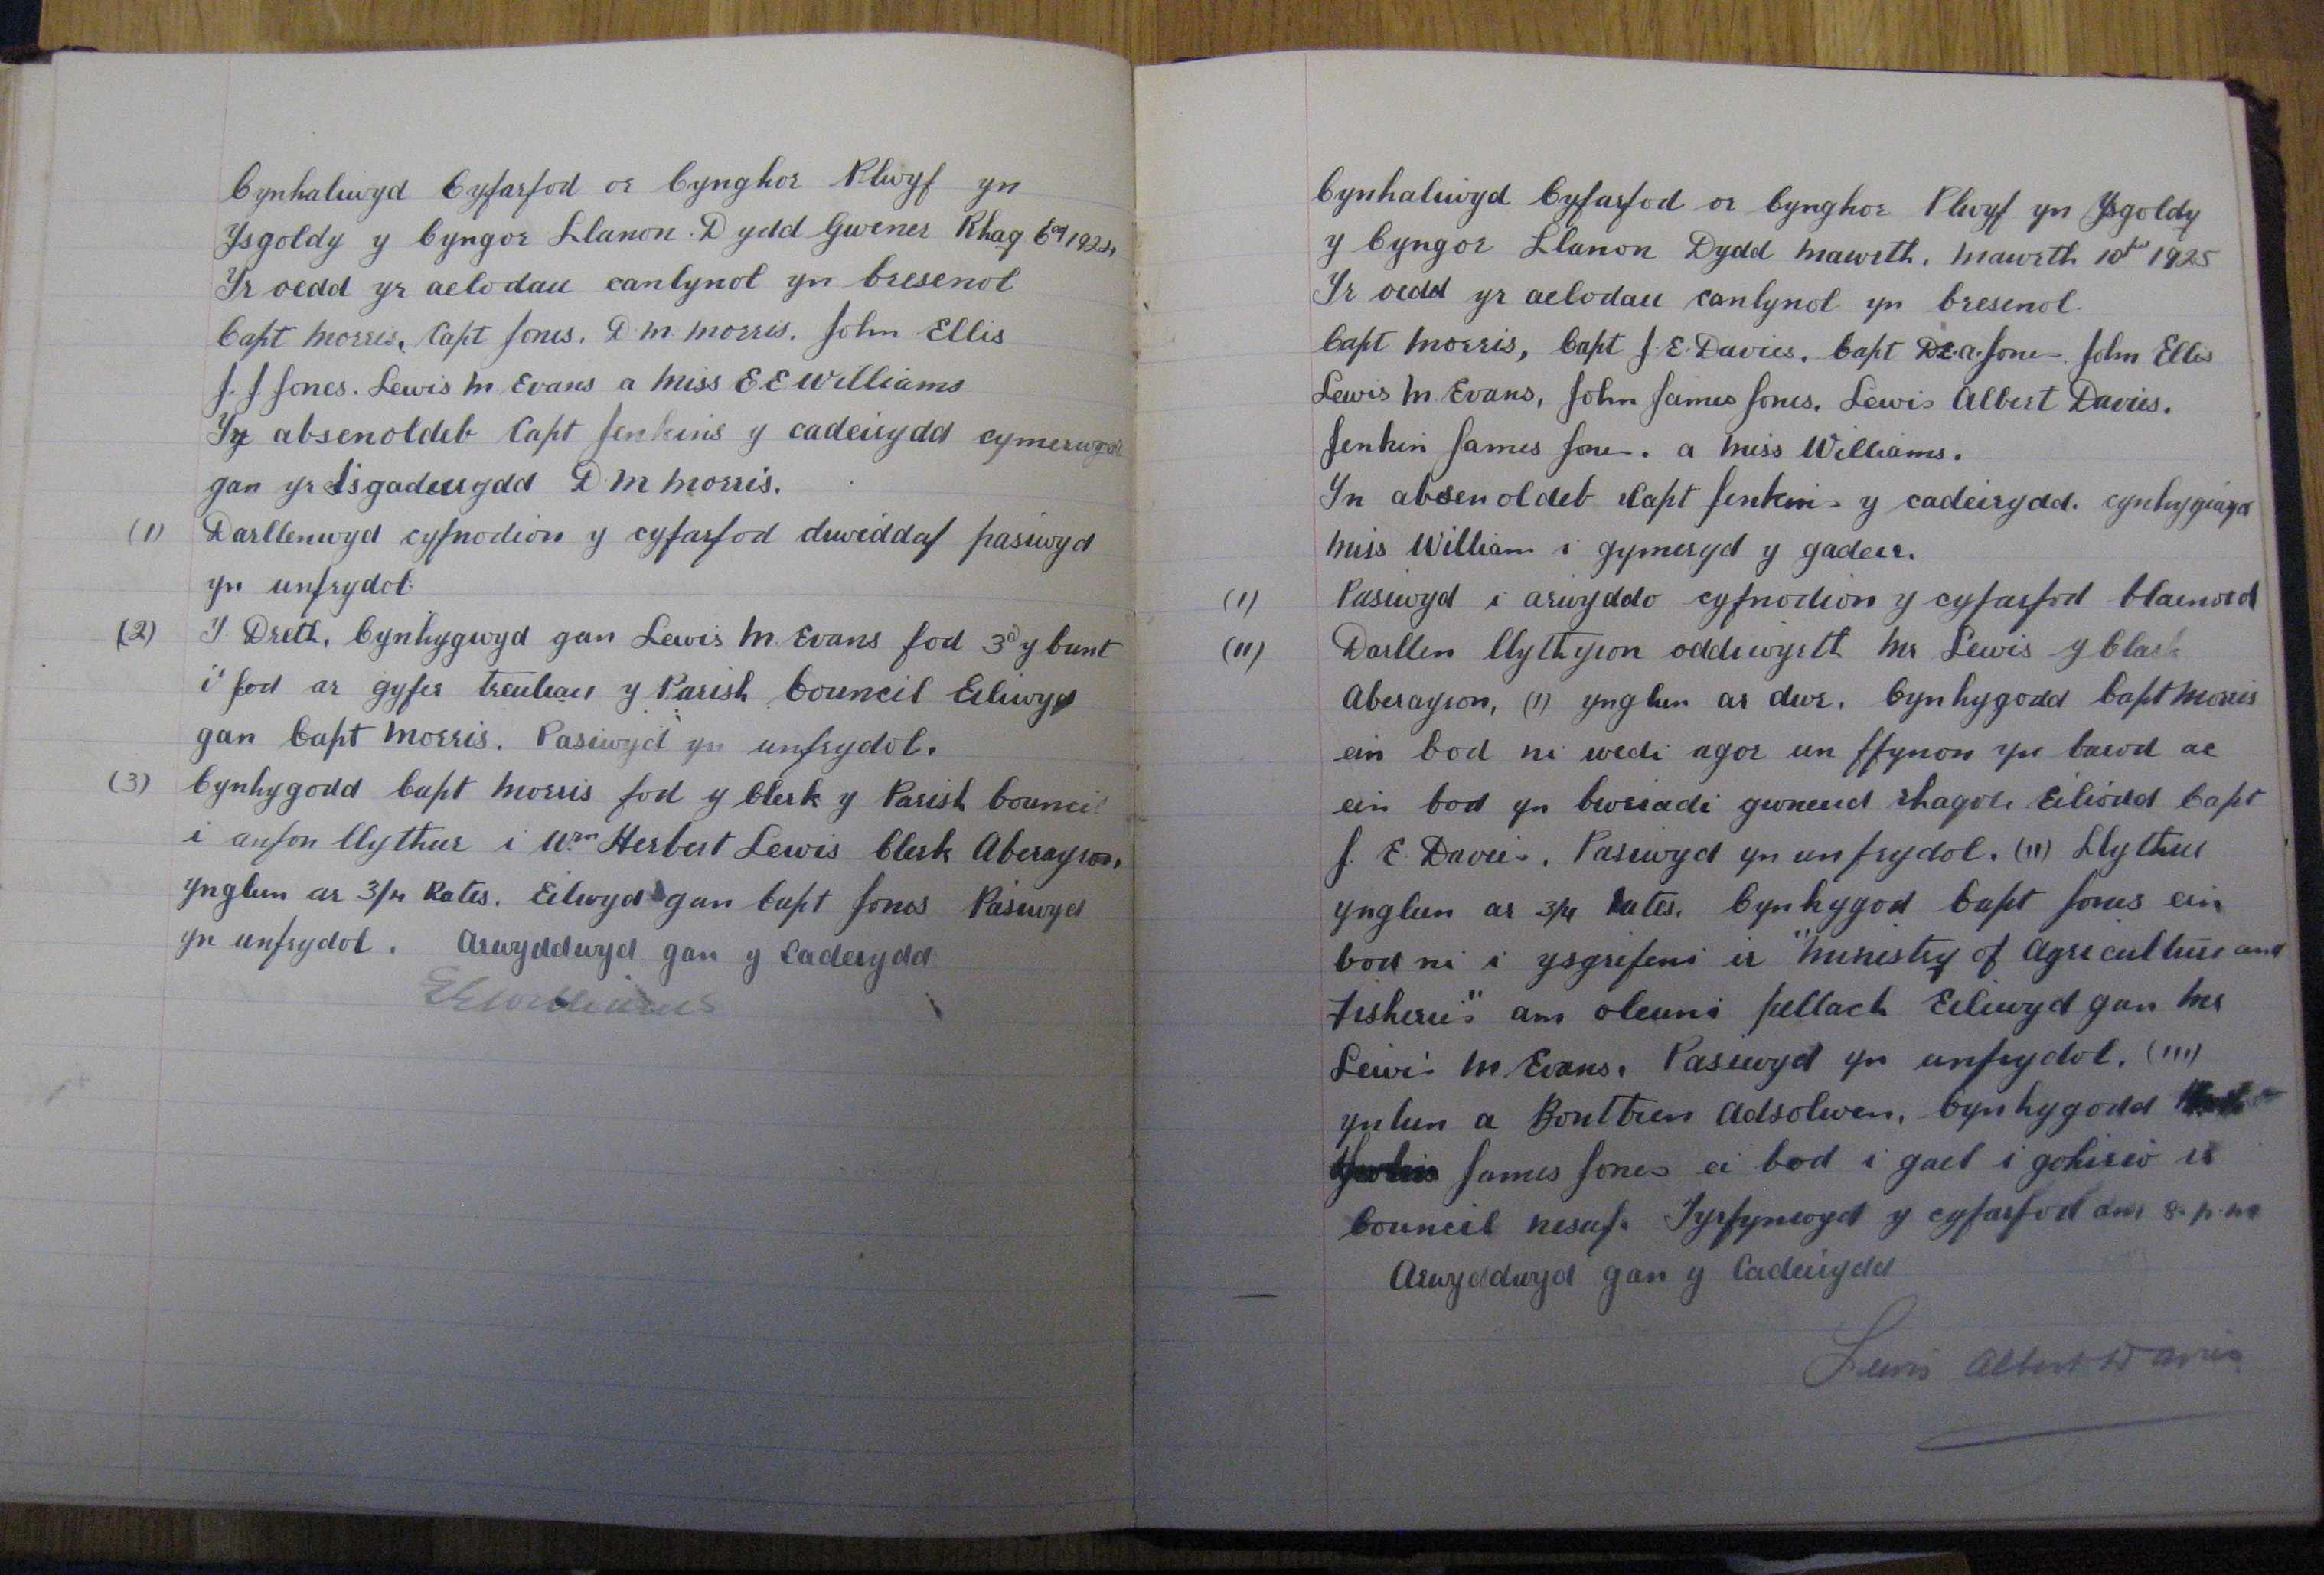 Cynhaliwyd Cyfarfod or Cynghor Plwyf yn
Ysgoldy y Cyngor Llanon. Dydd Gwener Rhag 6ed 1924
Yr oedd yr aelodau canlynol yn bresenol
Capt Morris, Capt Jones. D. M. Morris. John Ellis
J. J. Jones. Lewis M. Evans a Miss E E Williams
Yn absenoldeb Capt Jenkins y cadeirydd cymerwyd
gan yr Isgadeirydd D. M Morris.
(1) Darllenwyd cyfnodion y cyfarfod diweddaf pasiwyd
yn unfrydol.
(2) Y Dreth. Cynhygwyd gan Lewis M. Evans fod 3d y bunt
i fod ar gyfer treuliau y Parish Council Eiliwyd
gan Capt Morris. Pasiwyd yn unfrydol.
(3) Cynhygodd Capt Morris fod y Clerk y Parish Council
i anfon llythur i Wm Herbert Lewis Clerk Aberayron,
ynglun ar 3/4 Rates. Eilwyd gan Capt Jones Pasiwyd
yn unfrydol. Arwyddwyd gan y Cadeirydd
E E Williams
Cynhaliwyd Cyfarfod or Cynghor Plwyf yn Ysgoldy
y Cyngor Llanon Dydd Mawrth. Mawrth 10fed 1925
Yr oedd yr aelodau canlynol yn bresenol.
Capt Morris, Capt J. E. Davies. Capt D. A. Jones. John Ellis
Lewis M. Evans, John James Jones. Lewis Albert Davies.
Jenkin James Jones. a Miss Williams.
Yn absenoldeb Capt Jenkins y cadeirydd. cynhygiwyd
Miss William i gymeryd y gadeir.
(1) Pasiwyd i arwyddo cyfnodion y cyfarfod blaenord
(11) Darllen llythyron oddiwyrth Mr Lewis y Clerk
Aberayron, (1) ynglun ar dwr. Cynhygodd Capt Morris
ein bod ni wedi agor un ffynon yn barod ac
ein bod yn bwriadi gwneud rhagor. Eiliodd Capt
J. E. Davies. Pasiwyd yn unfrydol. (11) Llythur
ynglun ar 3/4 Rates. Cynhygod Capt Jones ein
bod ni i ysgrifeni ir "Ministry of Agriculture and
Fisheries" am oleuni pellach Eiliwyd gan Mr
Lewis M Evans. Pasiwyd yn unfrydol. (111)
ynlun a Bontbren Adsolwen, Cynhygodd
James Jones ei bod i gael i gohirio ir
Council nesaf. Tyrfynwyd y cyfarfod am 8. p. m
Arwyddwyd gan y Cadeirydd
Lewis Albert Davies